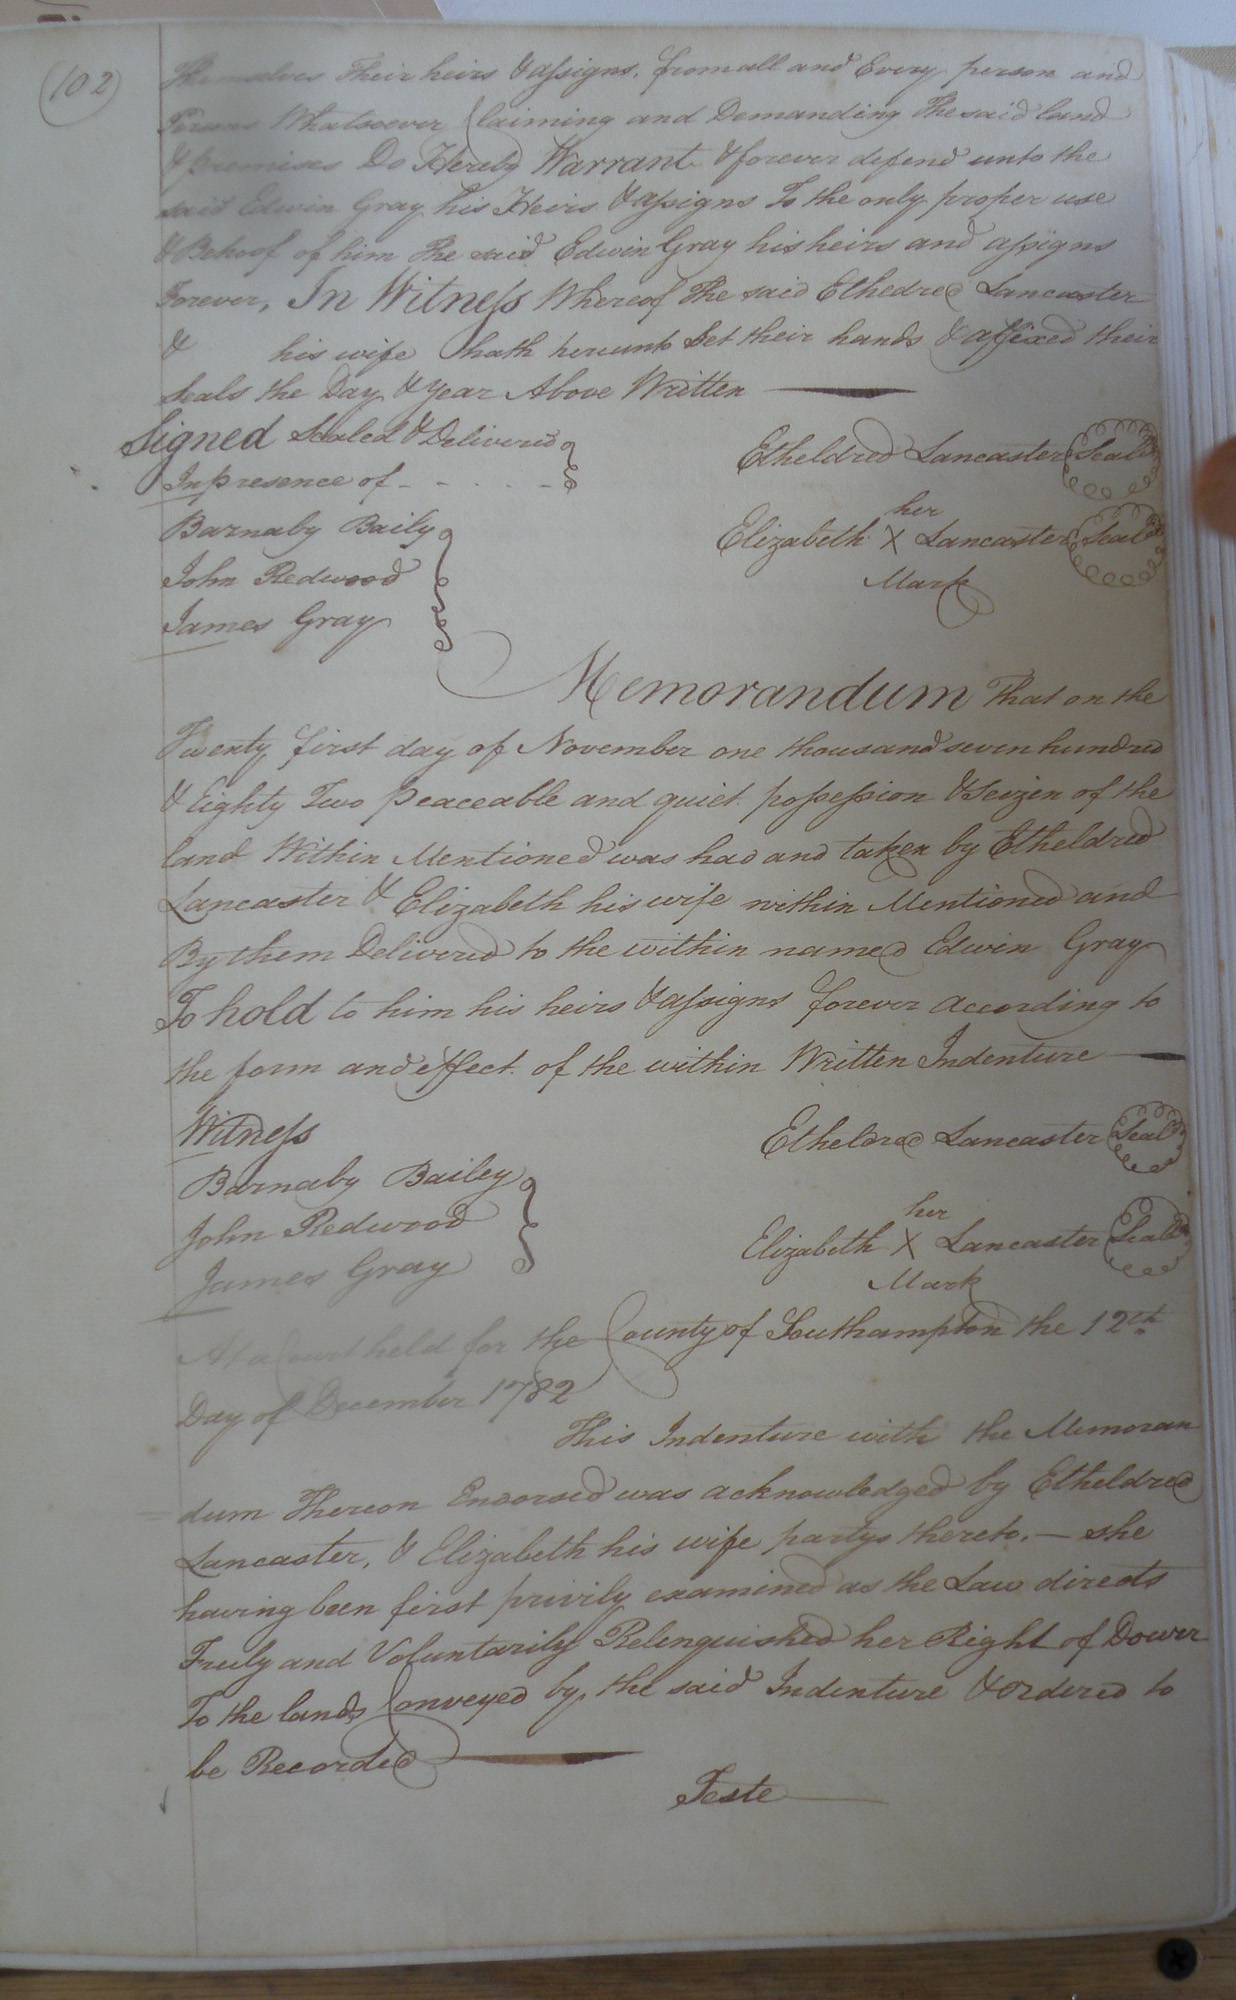 (102)
Themselves Their heirs & assigns, from all and Every person and
Persons Whatsoever Claiming and Demanding The said land
& premises Do Hereby Warrant & forever defend unto the
said Edwin Gray his Heirs & assigns To the only proper use
& Behoof of him The said Edwin Gray his heirs and assigns
Forever, In Witness Whereof The said Ethedred Lancaster
& his wife hath hereunto Set their hands & affixed their
Seals the Day & year Above Written
Signed Sealed & Delivered
In presence of - - - - -
Etheldred Lancaster Seal
Barnaby Baily
her
Elizabeth X Lancaster Seal
Mark
John Redwood
James Gray
Memorandum That on the
Twenty first day of November one thousand seven hundred
& Eighty Two peaceable and quiet possession & Seizen of the
land Within Mentioned was had and taken by Etheldred
Lancaster & Elizabeth his wife within Mentioned and
By them Delivered to the within named Edwin Gray
To hold to him his heirs & assigns forever according to
the form and effect of the within Written Indenture
Witness
Etheldred Lancaster Seal
Barnaby Bailey
John Redwood
her
Elizabeth X Lancaster Seal
Mark
James Gray
At a Court held for the County of Southampton the 12th
Day of December 1782
This Indenture with the Memoran
dum Thereon Endorsed was acknowledged by Etheldred
Lancaster, & Elizabeth his wife partys thereto. — she
having been first privily examined as the Law directs
Freely and Voluntarily Relenquished her Right of Dower
To the lands Conveyed by the said Indenture & ordered to
be Recorded
Teste